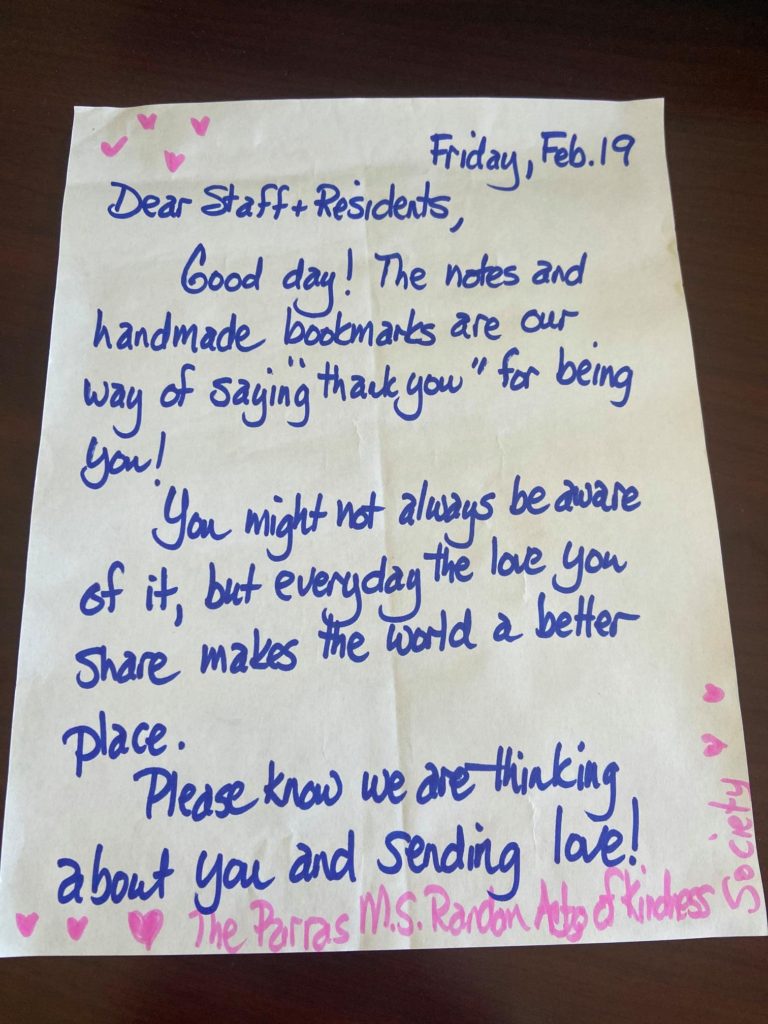 Friday, Feb. 19
Dear Staff + Residents,
Good day! The notes and
handmade bookmarks are our
way of saying "thank you" for being
you!
You might not always be aware
of it, but everyday the love you
share makes the world a better
place.
Please know we are thinking
about you and sending love!
The Parras M.S. Random Acts of Kindness
Society